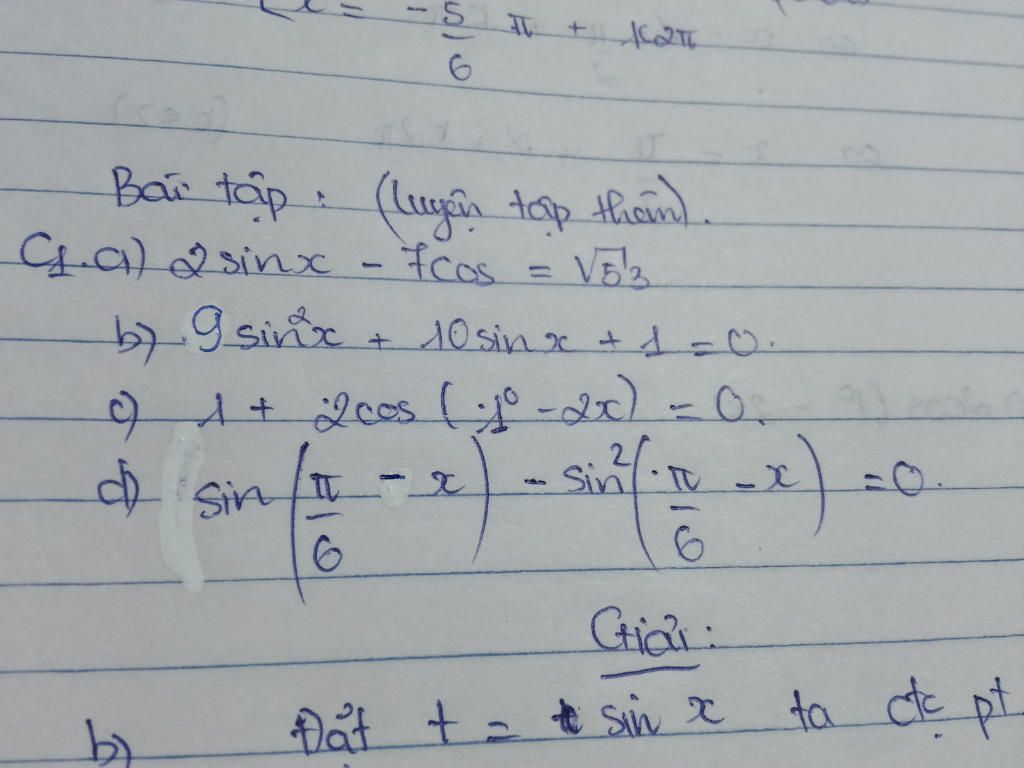 x = -5/6 π + k2π
Bài tập : (luyện tập thêm).
C1.a) 2 sinx - 7cos = √53
b) 9 sin²x + 10 sinx + 1 = 0.
c) 1 + 2cos (1° - 2x) = 0.
d) sin (π/6 - x) - sin² (π/6 - x) = 0.
Giải :
b) Đặt t = sin x ta đc pt